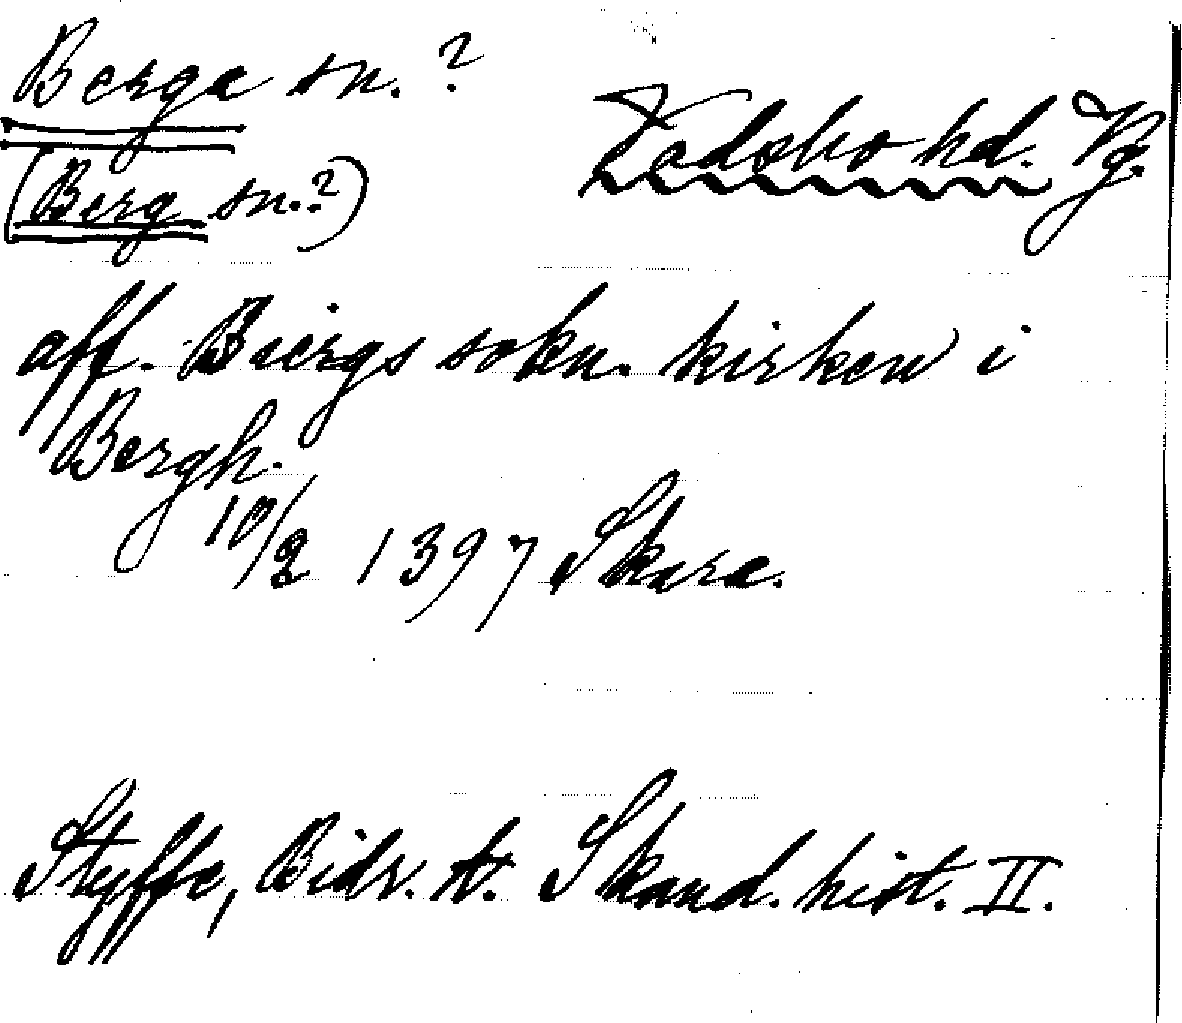 Berga sn.? Vadsbo hd. Vg.
(Berg sn.?)
aff. Biergs sokn. kirken i
Bergh.
10/2 1397 Skara.
Styffe, Bidr. t. Skand. hist. II.